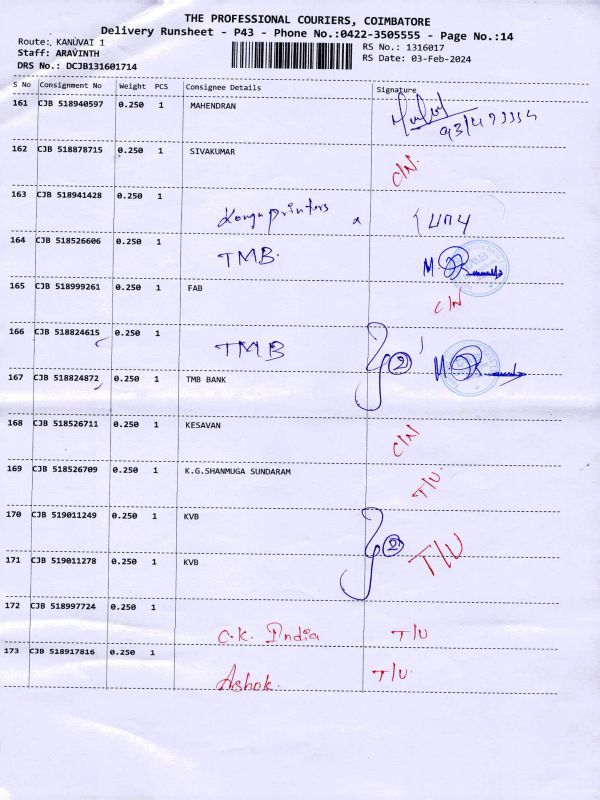 THE PROFESSIONAL COURIERS, COIMBATORE
Delivery Runsheet - P43 - Phone No.:0422-3505555 - Page No.:14
Route: KANUVAI 1
RS No.: 1316017
Staff: ARAVINTH
RS Date: 03-Feb-2024
DRS No.: DCJB131601714
S No Consignment No Weight PCS Consignee Details Signature
161 CJB 518940597 0.250 1 MAHENDRAN
162 CJB 518878715 0.250 1 SIVAKUMAR C/N.
163 CJB 518941428 0.250 1
164 CJB 518526606 0.250 1 TMB.
165 CJB 518999261 0.250 1 FAB C/N
166 CJB 518824615 0.250 1 TMB 2
167 CJB 518824872 0.250 1 TMB BANK
168 CJB 518526711 0.250 1 KESAVAN C/N
169 CJB 518526709 0.250 1 K.G.SHANMUGA SUNDARAM T/U.
170 CJB 519011249 0.250 1 KVB 2 T/U
171 CJB 519011278 0.250 1 KVB
172 CJB 518997724 0.250 1 C.K. India T/U
173 CJB 518917816 0.250 1 Ashok. T/U.